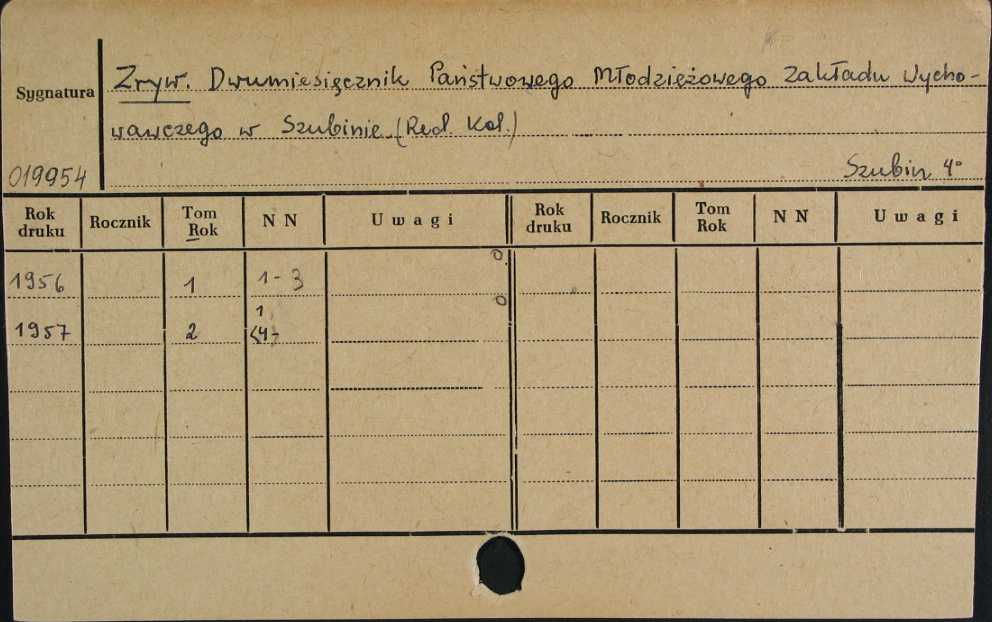 Zryw. Dwumiesięcznik Państwowego Młodzieżowego Zakładu Wycho-
Sygnatura
wawczego w Szubinie (Red. Kol.)
019954 Szubin 4°
Rok druku Rocznik Tom Rok N N Uwagi Rok druku Rocznik Tom Rok N N Uwagi
1956 1 1-3
1
1957 2 <4-